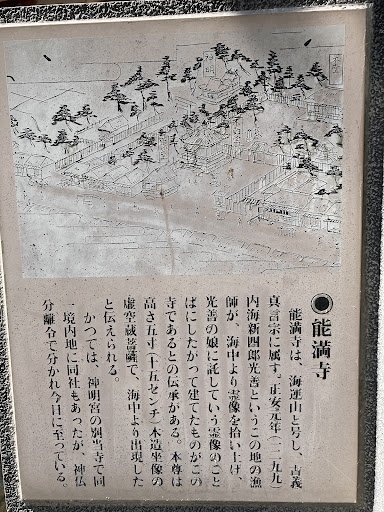 ◉能満寺
能満寺は、海運山と号し、古義
真言宗に属す。正安元年(一二九九)
内海新四郎光善というこの地の漁
師が、海中より霊像を拾い上げ、
光善の娘に託していう霊像のこと
ばにしたがって建てたものがこの
寺であるとの伝承がある。本尊は
高さ五寸(十五センチ)木造坐像の
虚空蔵菩薩で、海中より出現した
と伝えられる。
かつては、神明宮の別当寺で同
一境内地に同社もあったが、神仏
分離令で分かれ今日に至っている。